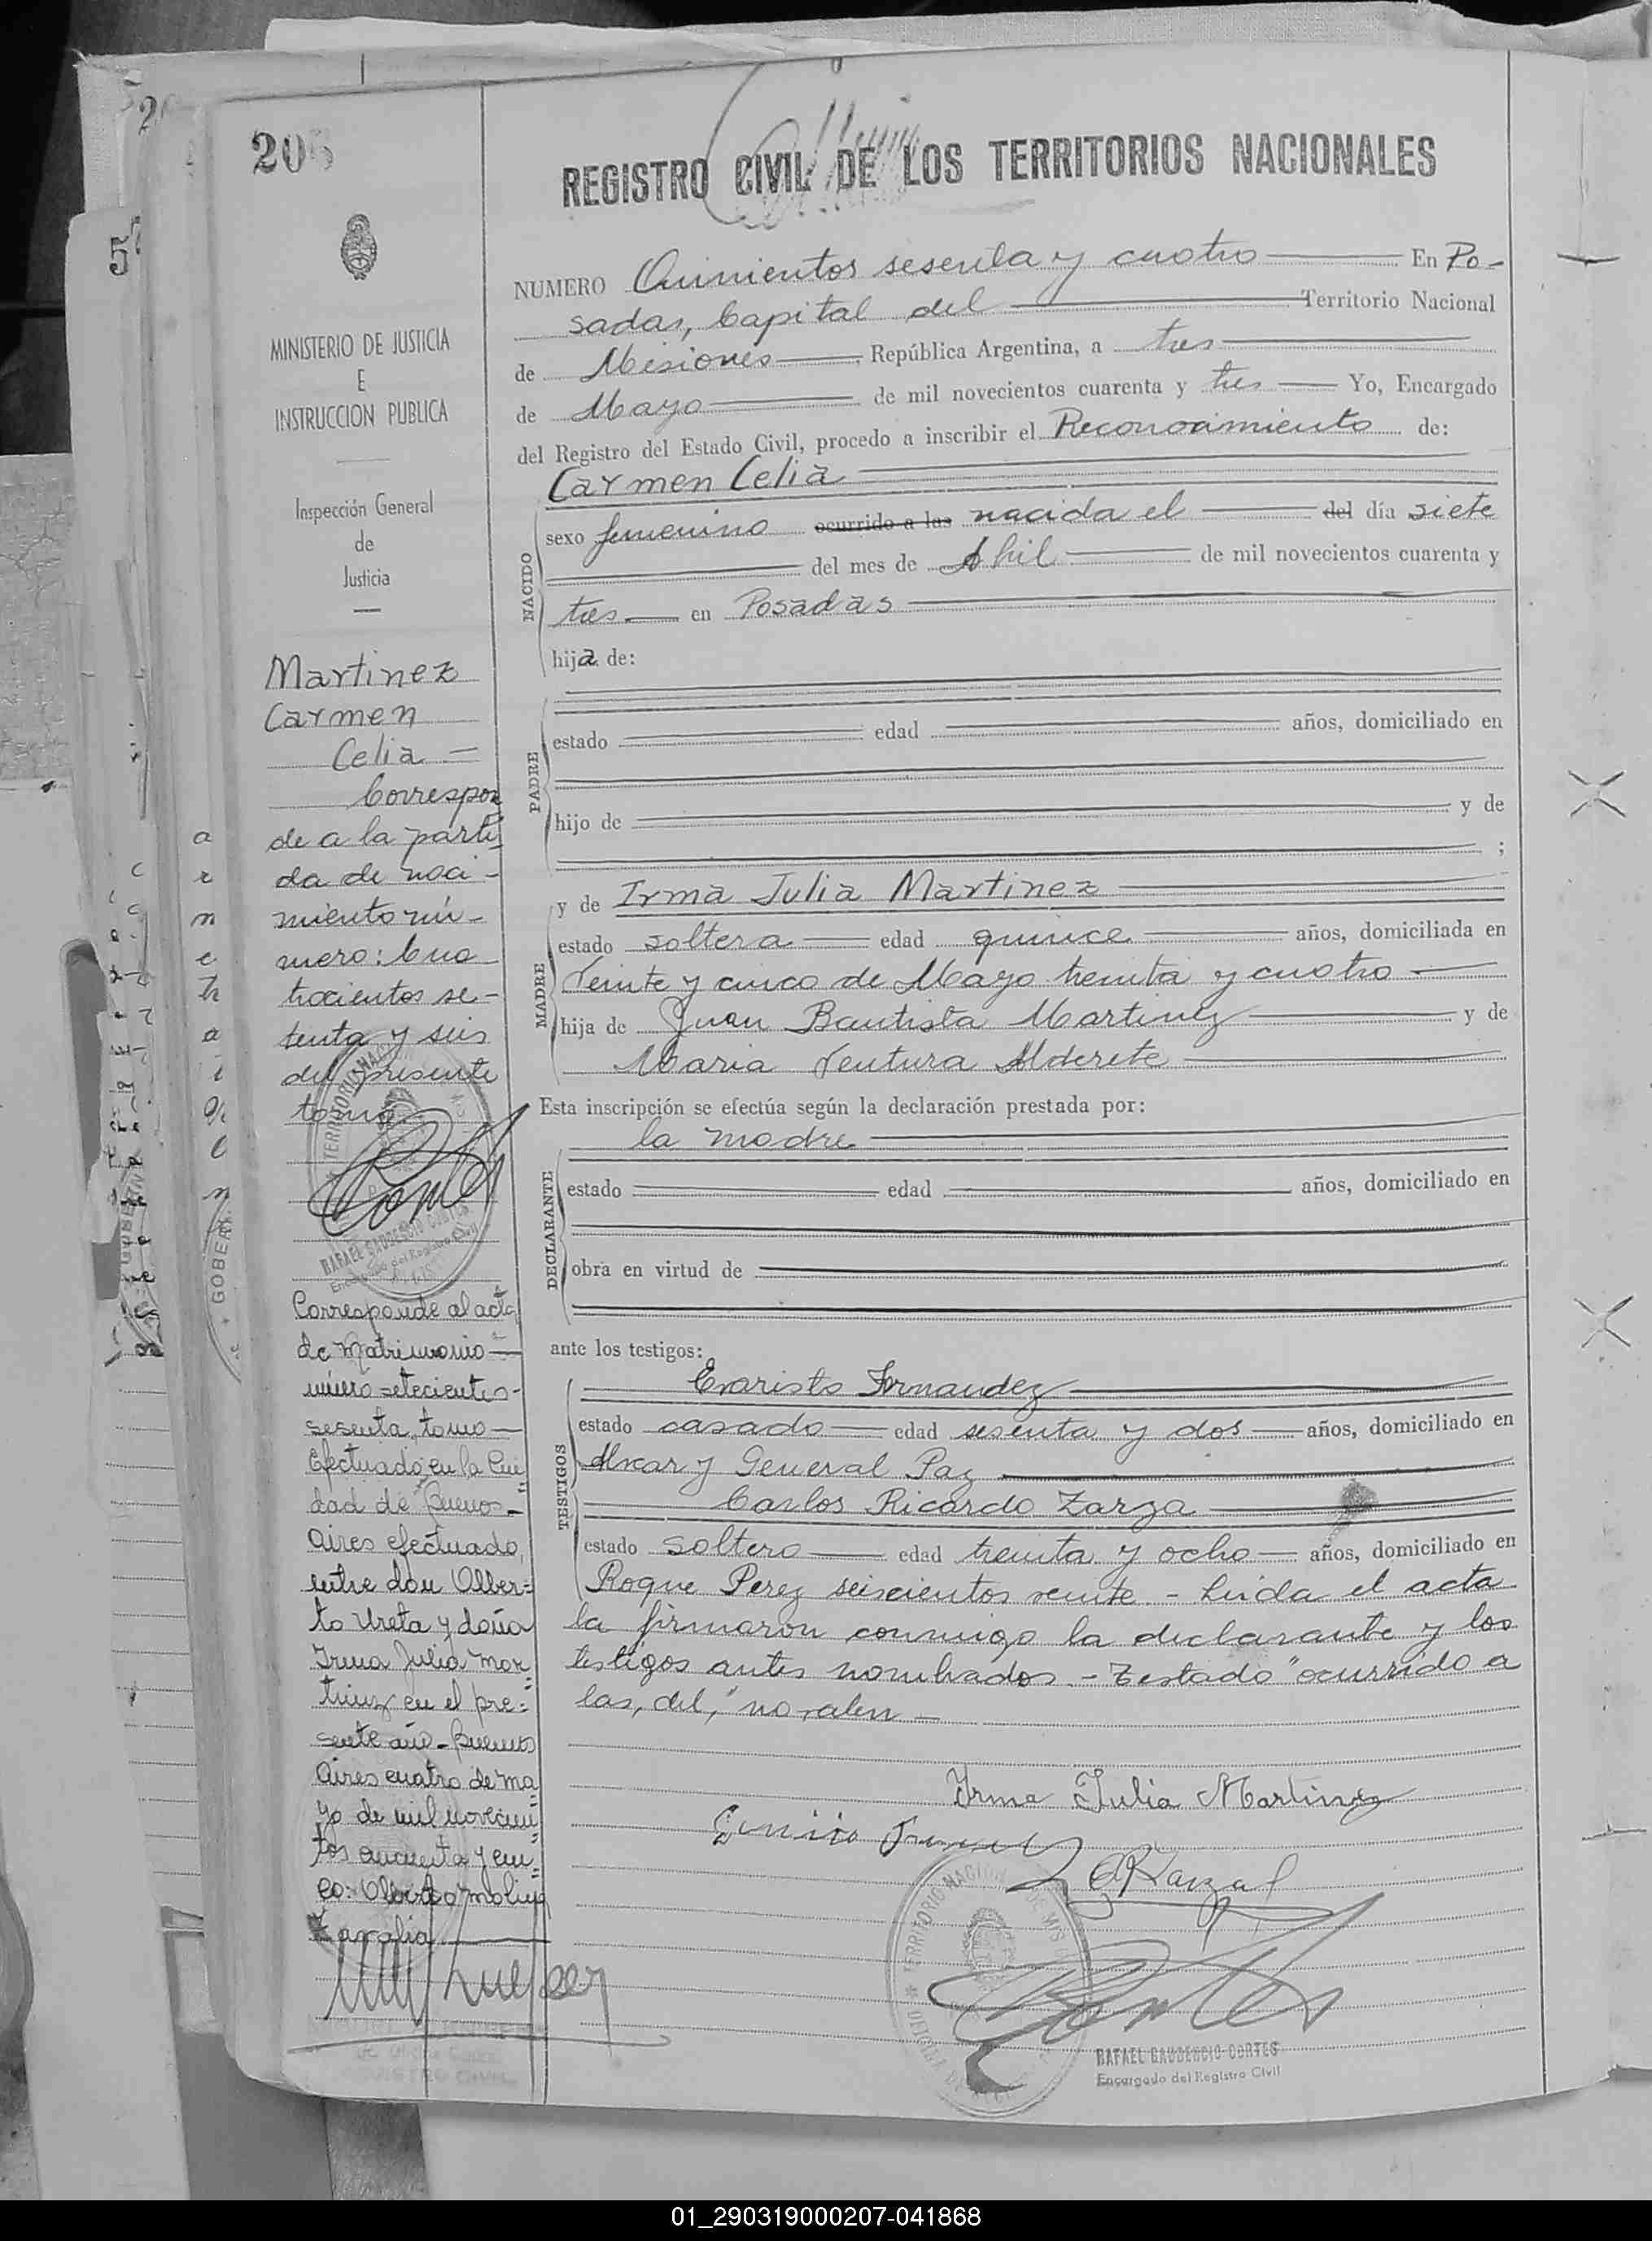 206
REGISTRO CIVIL DE LOS TERRITORIOS NACIONALES
MINISTERIO DE JUSTICIA
E
INSTRUCCION PUBLICA
Inspección General
de
Justicia
NUMERO Quinientos sesenta y cuatro En Po-
sadas, Capital del Territorio Nacional
de Misiones, República Argentina, a tres
de Mayo de mil novecientos cuarenta y tres Yo, Encargado
del Registro del Estado Civil, procedo a inscribir el Reconocimiento de:
Carmen Celia
NACIDO
sexo femenino ocurrido a las nacida el del día siete
del mes de Abril de mil novecientos cuarenta y
tres en Posadas
hija de:
PADRE
estado edad años, domiciliado en
hijo de y de
;
MADRE
y de Irma Julia Martinez
estado soltera edad quince años, domiciliada en
Veinte y cinco de Mayo treinta y cuatro
hija de Juan Bautista Martinez y de
Maria Ventura Alderete
Esta inscripción se efectúa según la declaración prestada por:
la madre
DECLARANTE
estado edad años, domiciliado en
obra en virtud de
ante los testigos:
TESTIGOS
Evaristo Fernandez
estado casado edad sesenta y dos años, domiciliado en
Alvear y General Paz
Carlos Ricardo Zarza
estado soltero edad treinta y ocho años, domiciliado en
Roque Perez seiscientos veinte - Leida el acta
la firmaron conmigo la declarante y los
testigos antes nombrados.- Testado "ocurrido a
las, del," no valen -
Irma Julia Martinez
RAFAEL GAUDENCIO CORTES
Encargado del Registro Civil
Martinez
Carmen
Celia -
Correspon
de a la parti
da de naci-
miento nú-
mero: Cua
trocientos se-
tenta y seis
del presente
tomo
RAFAEL GAUDENCIO CORTES
Encargado del Registro Civil
Corresponde al acta
de Matrimonio
número setecientos-
sesenta, tomo
Efectuado en la Ciu
dad de Buenos-
Aires efectuado,
entre don Alber=
to Ureta y doña
Irma Julia Mar
tinez en el pre=
sente año - Buenos
Aires cuatro de ma
yo de mil novecien
tos cincuenta y cin
co: Alberto Molina
01_290319000207-041868